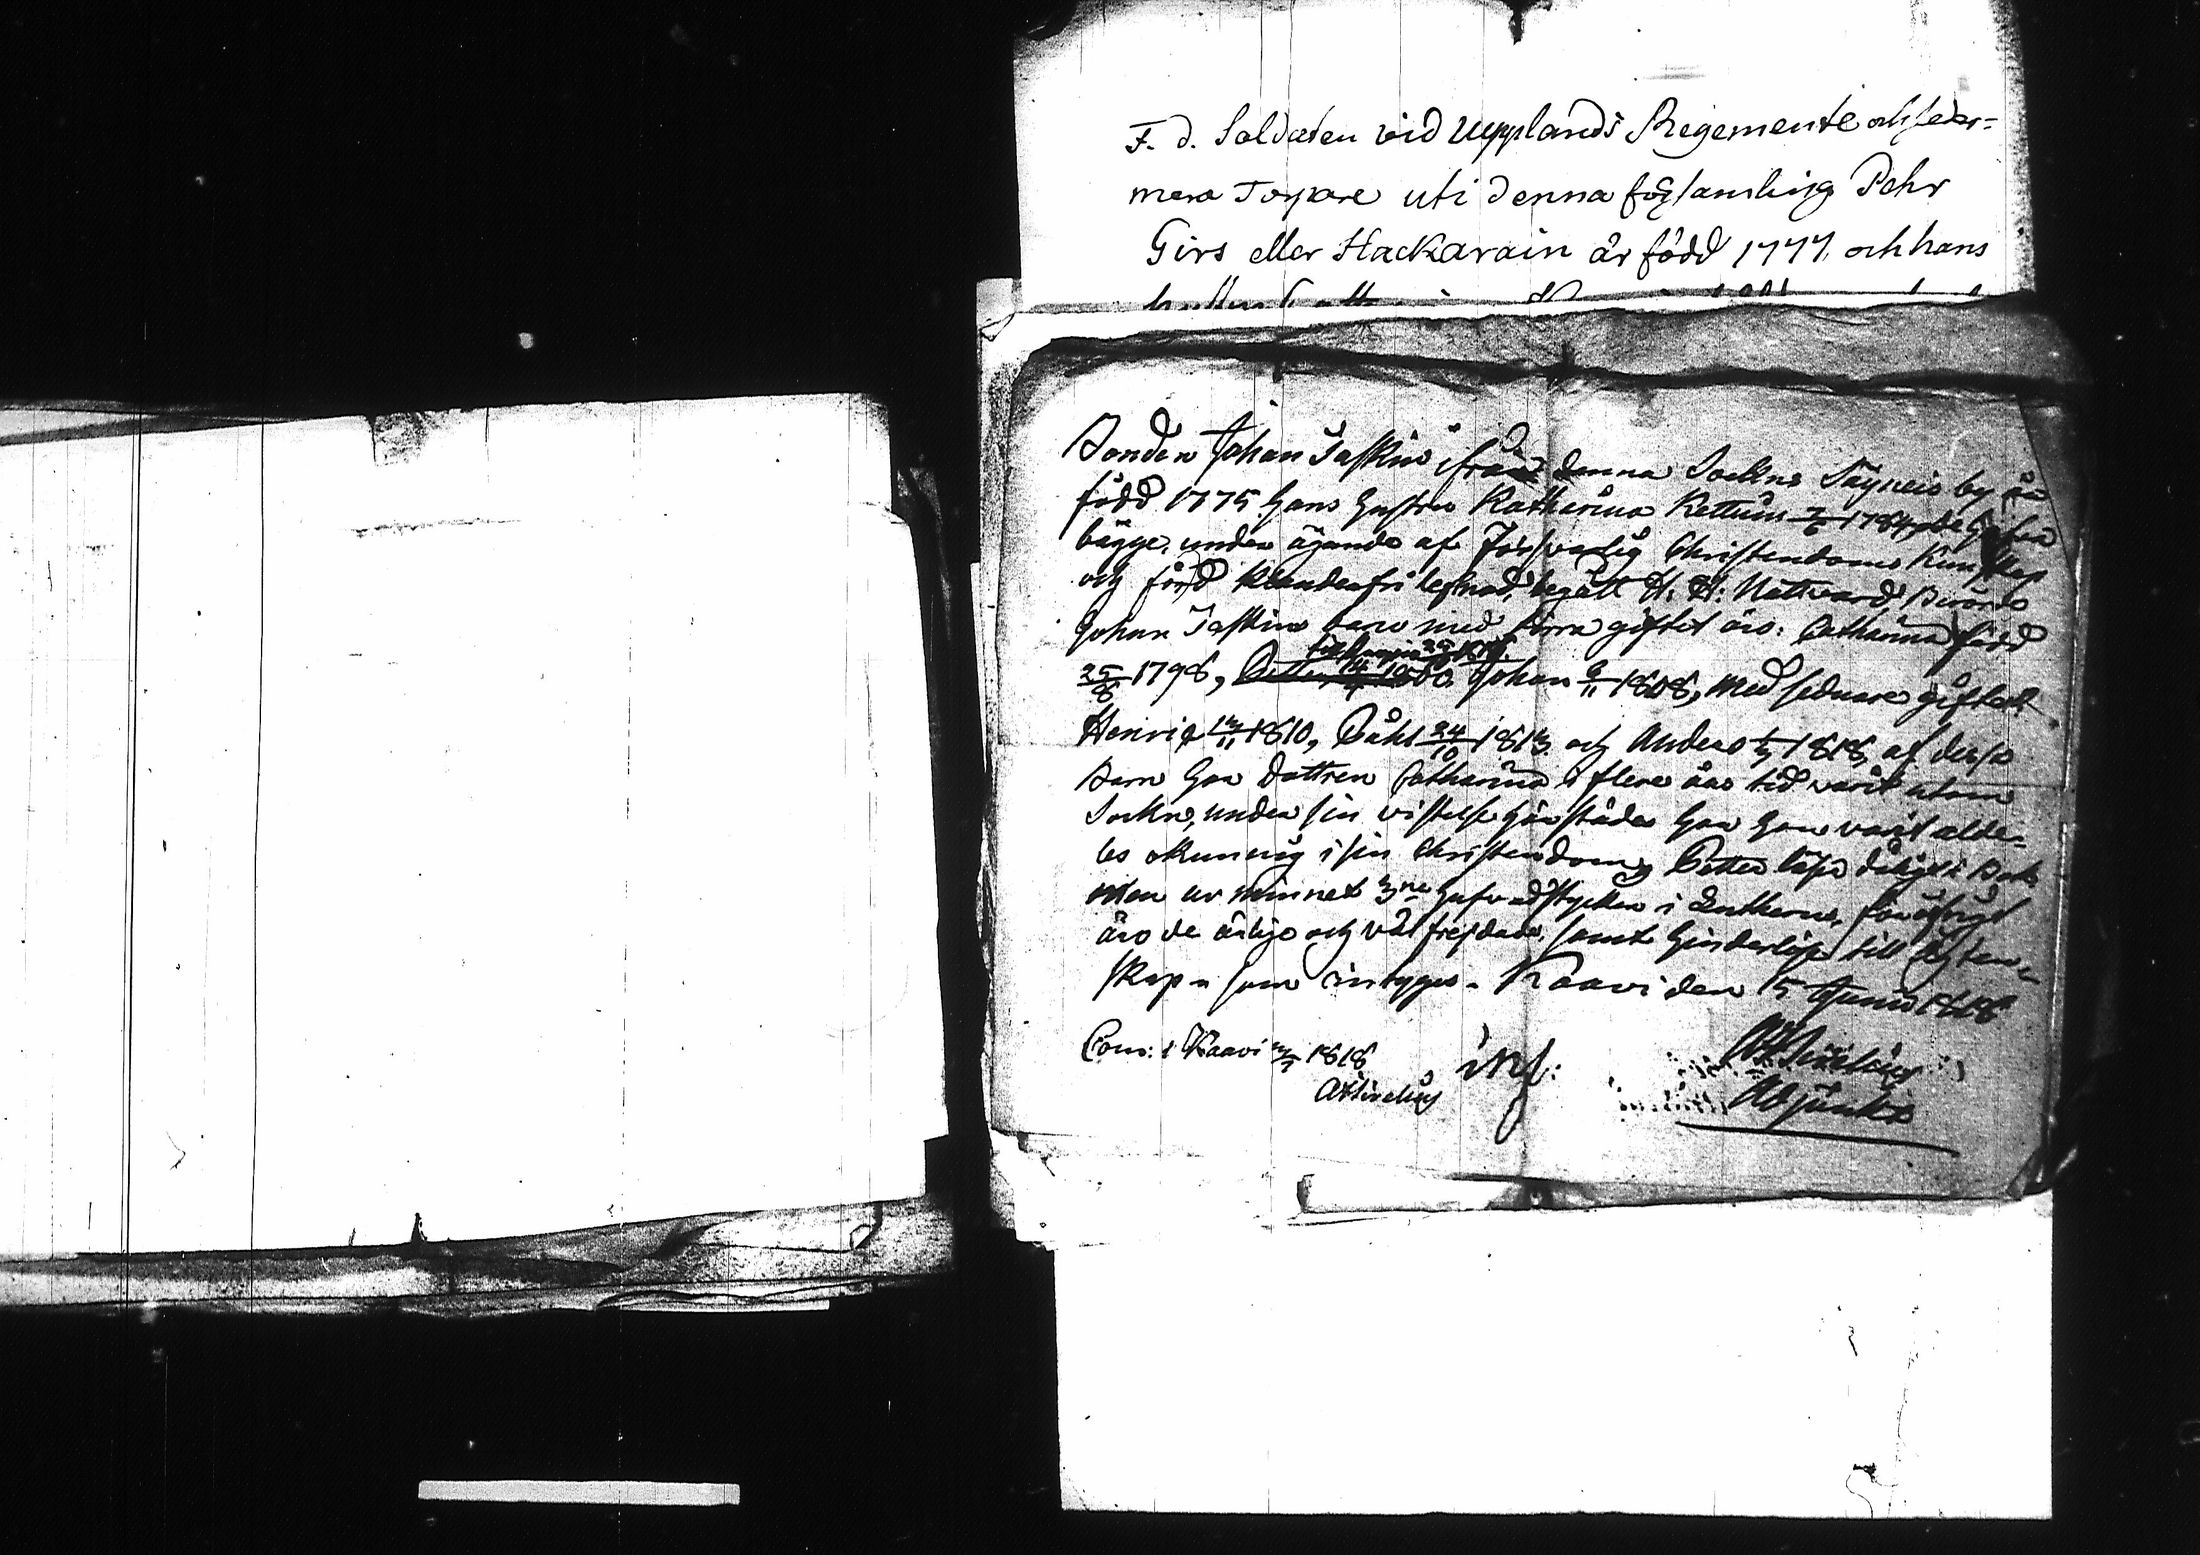 F. d. Soldaten vid Upplands Regemente och seder=
mera Torpare uti denna församling Pehr
Girs eller Hackarain är född 1777, och hans
Bonden Johan Jaskin ifrån denna Sockns Säyneis by är
född 1775 hans hustru Katharina Kettuin 7/6 1784, de hafva
bägge, under ägande af försvarlig Christendoms Kunskap
och förd klanderfri lefnad, begått H. H. Nattvard, Bonden
Johan Jaskins barn med förra giftet äro: Catharina född
25/8 1798, Petter 14/4 1800. Johan 6/11 1808, med sednare giftet
Henric 13/11 1810, Påhl 24/10 1813 och Anders 1/3 1818, af dessa
Barn har dottren Catharina i flere års tid varit utom
Sockn, under sin vistelse härstädes har hon varit alde-
les okunnig i sin Christendom, Petter läser i Bok
utan ur minnet 3ne hufvudstycken i Lutheri, för öfrigt
äro de ärlige och väl frejdade, samt hinderlöse till ägten-
skap - som intygas - Kaavi den 15 Junii 1818
Com: i Kaavi 1818
Adjunkt